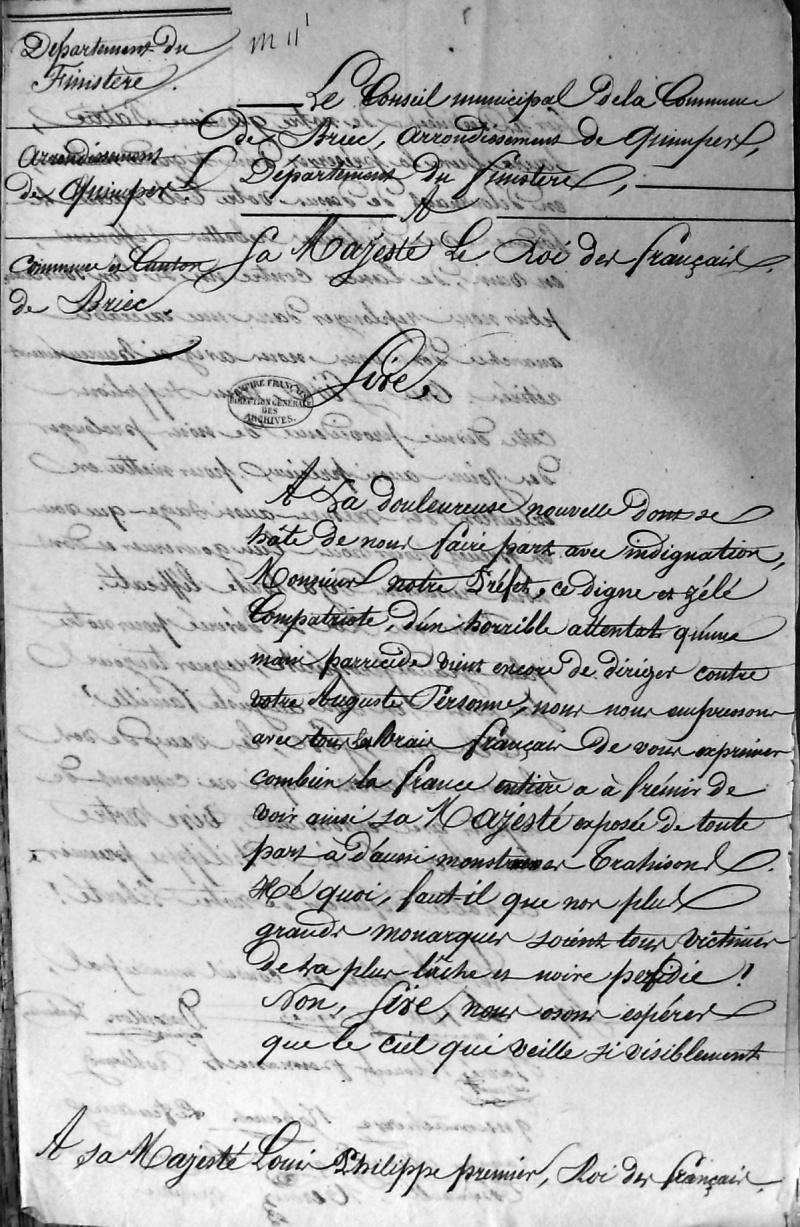 Département du
Finistère.
m 11
Arrondissement
de Quimper.
Commune et Canton
de Briec.
Le Conseil municipal de la Commune
de Briec, arrondissement de Quimper,
Département du finistère,
A
Sa Majesté Le Roi des français.
Sire,
EMPIRE FRANÇAIS
DIRECTION GÉNÉRALE
DES
ARCHIVES.
A La douleureuse nouvelle dont se
hâte de nous faire part avec indignation,
Monsieur notre Préfet, ce digne et zélé
Compatriote, d'un horrible attentat qu'une
main parricide vient encore de diriger contre
votre Auguste Personne, nous nous empressons
avec tous les vrais français de vous exprimer
combien la france entière a à frémir de
voir ainsi sa Majesté exposée de toute
part à d'aussi monstrueuses trahisons.
Hé quoi, faut-il que nos plus
grands monarques soient tous victimes
de la plus lâche et noire perfidie!
Non, Sire, nous osons espérer
que le ciel qui veille si visiblement
A sa Majesté Louis Philippe premier, Roi des français.